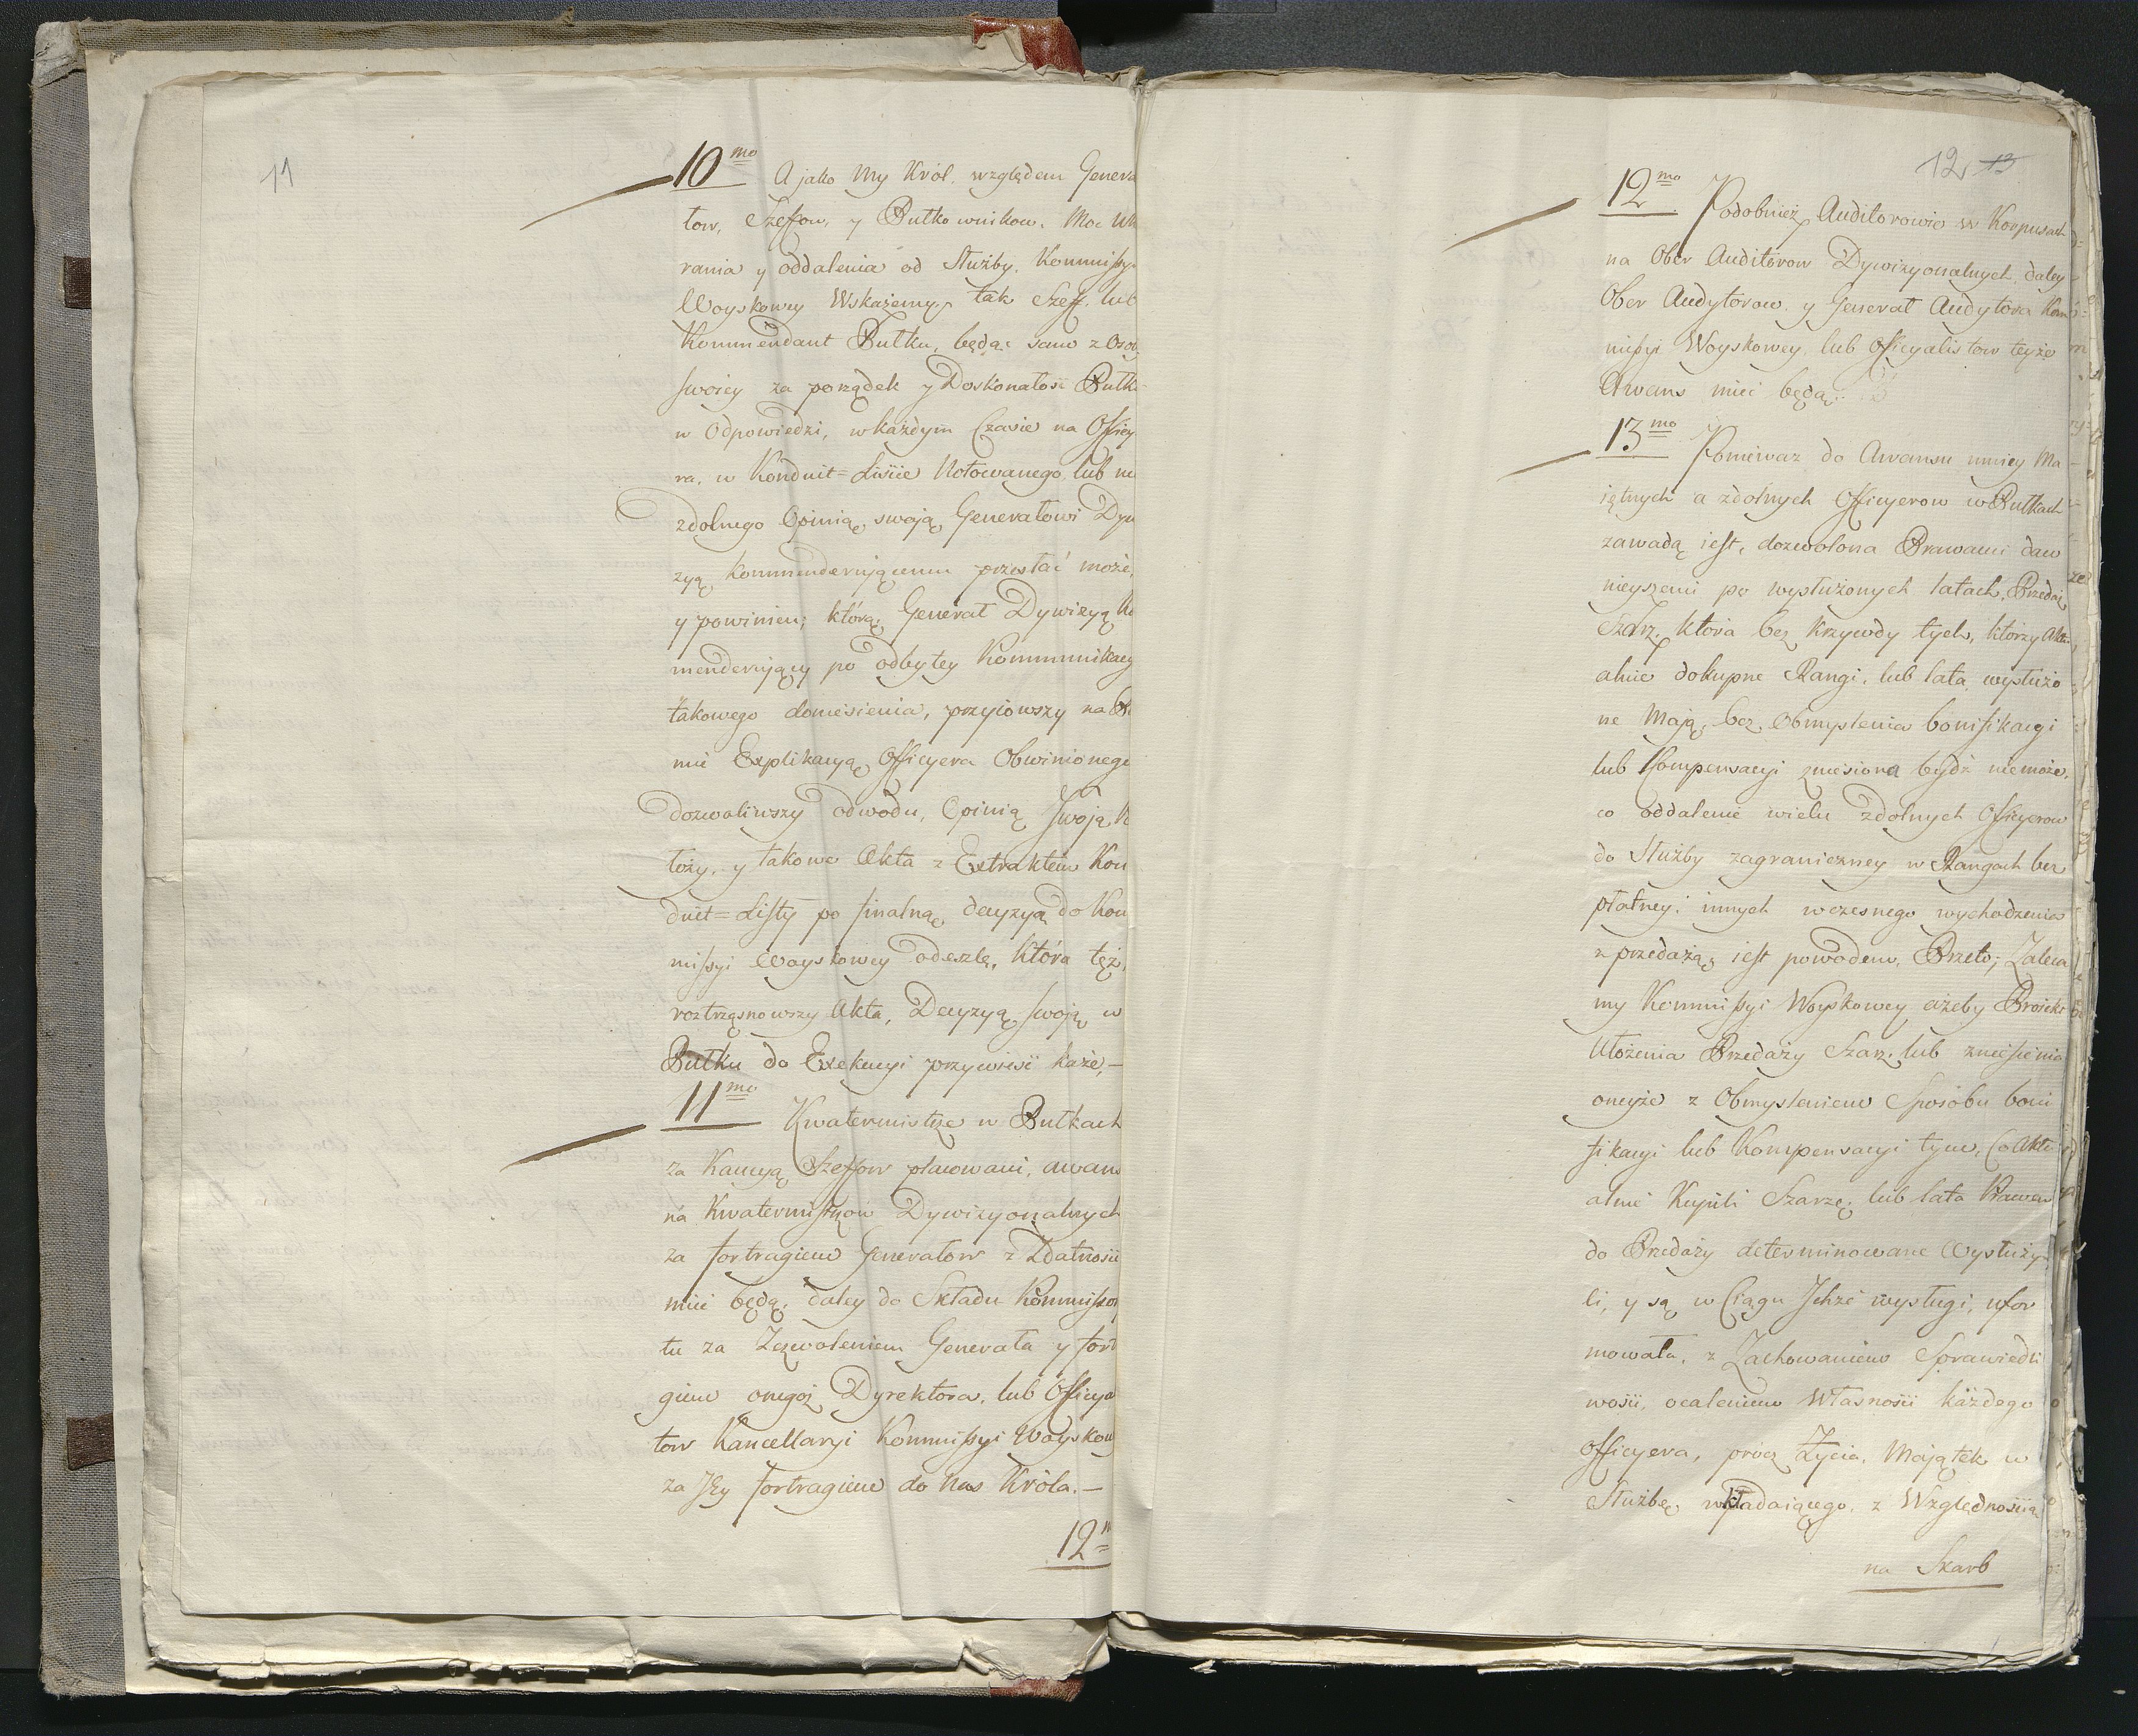 11
10mo A jako My Król. względem Genera
tow, Szeffow, y Pułkownikow. Moc
rania y oddalenia od Służby, Kommissyi
Woyskowey Wskażemy, tak Szeff. lub
Kommendant Pułku, będąc sam z Osob
swoiey za porządek y Doskonałość Pułk
w Odpowiedzi, w każdym Czasie na Officy
ra, w Konduit=Liście Notowanego, lub nie
zdolnego Opinią swoją Generałowi Dywi
zyą Kommenderującemu przesłać może,
y powinien; którą Generał Dywizyą Ko
menderujący po odbytey Kommunikacyi
takowego doniesienia, przyiowszy na
mie Explikacyą Officyera Obwinionego
dozwoliwszy odwodu, Opinią swoją
łoży, y takowe Akta z Extraktem Kon
duit=Listy po finalną decyzyą do Kom
missyi Woyskowey odeszle, która też,
roztrząsnowszy Akta, Decyzyą swoją w
Pułku do Exekucyi przywieść każe,—
11mo Kwatermistrze w Pułkach
za Kaucyą Szeffow placowani, awans
na Kwatermistrzow Dywizyonalnych
za fortragiem Generałow z Zdatności
mieć będą, daley do Składu Kommissor
tu za Zezwoleniem Generała y fort
giem onegoż Dyrektora, lub Officya
tow Kancellaryi Kommissyi Woyskow
za Jey fortragiem do Nas Króla.—
12m
12 13
12mo Podobnież Auditorowie w Korpusach
na Ober Auditorow Dywizyonalnych, daley
Ober Audytorow y Generał Audytora Kom
missyi Woyskowey, lub Officyalistow teyże
Awans mieć będą.
13mo Ponieważ do Awansu mniey Ma
iętnych a zdolnych Officyerow w Pułkach
zawadą iest, dozwolona Prawami daw
nieyszemi po wysłużonych latach, Przedaż
Szarż, która bez krzywdy tych, którzy Aktu
alnie dokupne Rangi, lub lata wysłużo
ne Mają, bez Obmyslenia bonifikacyi
lub Kompensacyi zniesiona bydź nie może,
co oddalenie wielu zdolnych Officyerow
do Służby zagraniczney w Rangach bez
płatney, innych wczesnego wychodzenia
z przedażą iest powodem. Przeto; Zaleca
my Kommissyi Woyskowey ażeby Proiekt
Ułożenia Przedaży Szarż, lub zniesienia
oneyże z Obmysleniem Sposobu boni
fikacyi lub Kompensacyi tym, Co Aktu
alnie Kupili Szarże, lub lata Prawem
do Przedaży determinowane Wysłuży
li, y są w Ciągu Ichże wysługi, ufor
mowała, z Zachowaniem Sprawiedli
wości, ocaleniem Własności każdego
Officyera, prócz Życia, Majątek w
Służbę wkładaiącego, z Względnością
na Skarb